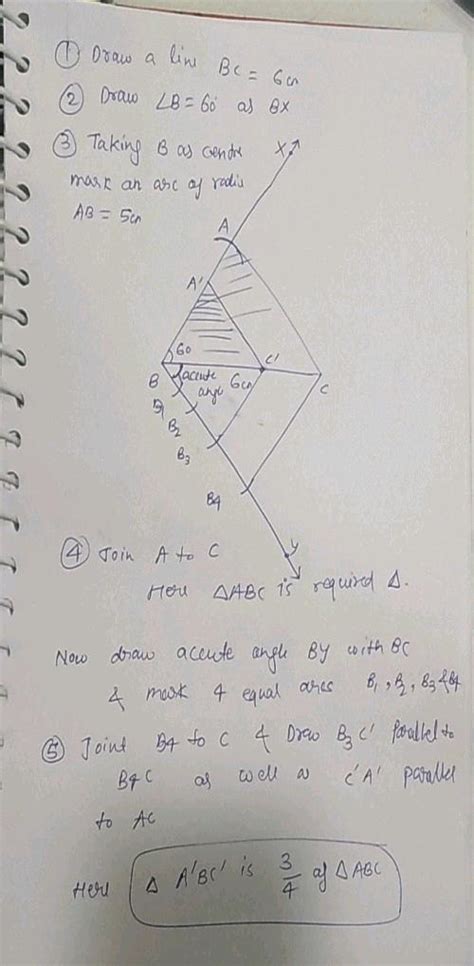 ① Draw a line BC = 6cm
② Draw ∠B = 60° as BX
③ Taking B as centre
mark an arc of radiu
AB = 5cm
X
A
A'
60
C'
B
accute
angl
6cm
C
B1
B2
B3
B4
Y
④ Join A to C
Here △ABC is required △.
Now draw accute angle BY with BC
& mark 4 equal arcs B1, B2, B3 & B4
⑤ Joint B4 to C & Draw B3 C' Parallel to
B4C as well as C'A' parallel
to AC
Here △ A'BC' is 3/4 of △ABC